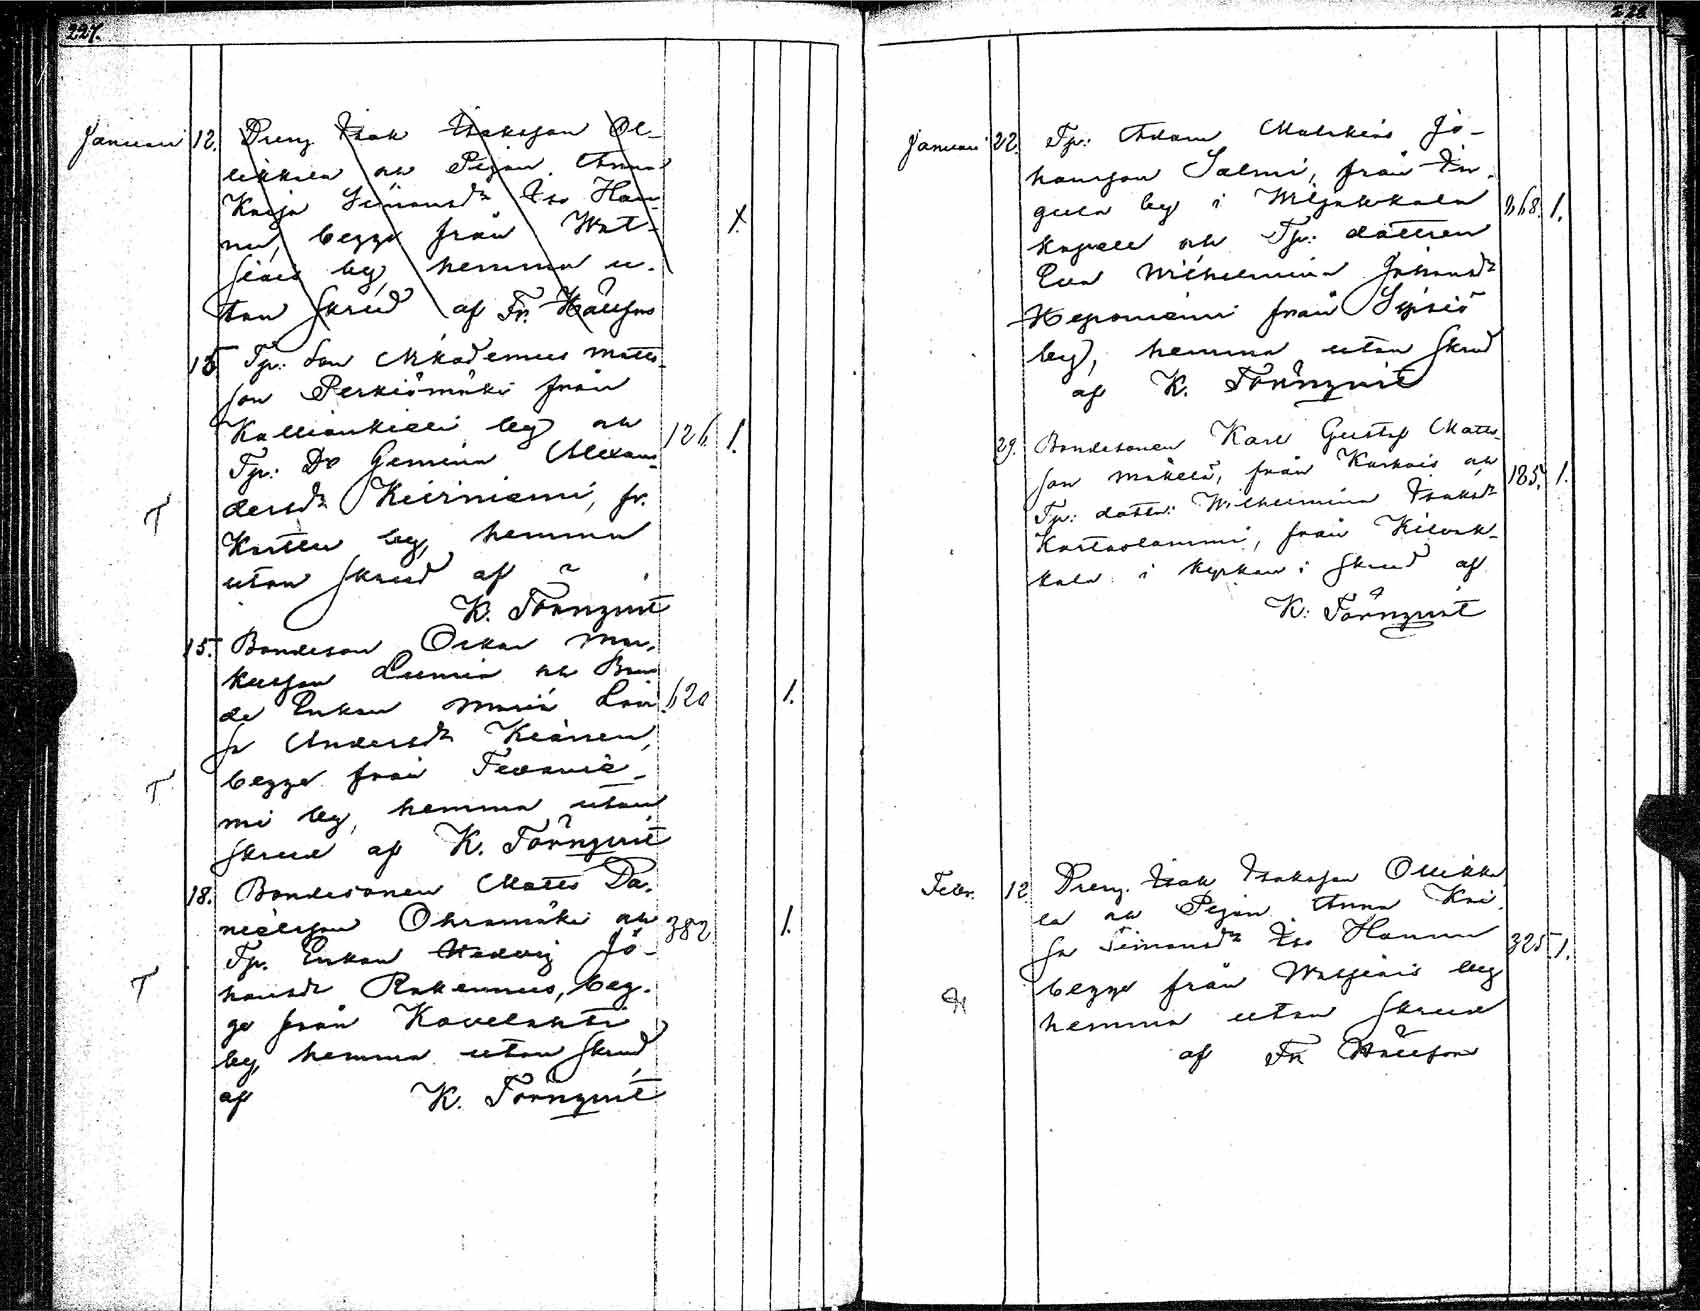 227.
Januari 12. Dreng Isak Isaksson Ol-
likkala och Pigan Anna
Kaisa Simonsdr Iso Han-
nu, begge från Wat-
jiais by, hemma u-
tan skrud af Fr. Hällfors
15 Tp: Son Nikodemus Matts-
son Perkiömäki från
Kallionkieli by och
Tp: Do Gemina Alexan- 126 1.
dersdr Keirniemi, fr.
T
by, hemma
utan skrud af
K. Törnqvist
15. Bondeson Oskar Mar-
kusson Lumia och Bon-
de Enkan Maria Lovi- 620 1.
sa Andersdr
begge från
T
mi by, hemma utan
skrud af K. Törnqvist
18. Bondesonen Matts Da-
nielsson Ohramäki och
Tp. Enkan Hedvig Jo- 382 1.
hansdr Rakennus, beg-
T
ge från Kovelahti
by, hemma utan skrud
af K. Törnqvist
228
Januari 22. Tp: Adam Malakias Jo-
hansson Salmi, från In-
gula by i Wiljakkala 268. 1.
kapell och Tp: dottren
Eva Wilhelmina Johansdr
Heponiemi från Sipsiö
by, hemma utan skrud
af K. Törnqvist
29. Bondesonen Karl Gustaf Matts-
son Mäkelä, från Karhois och
Tp: dottr: Wilhelmina Isaksdr 185. 1.
från Kilvak-
kala i kyrkan i skrud af
K: Törnqvist
Febr. 12 Dreng. Isak Isaksson Ollikka
la och Pigan Anna Kai-
sa Simonsdr Iso Hannu 325 1.
begge från Watjiais by
hemma utan skrud
af Fr Hällfors